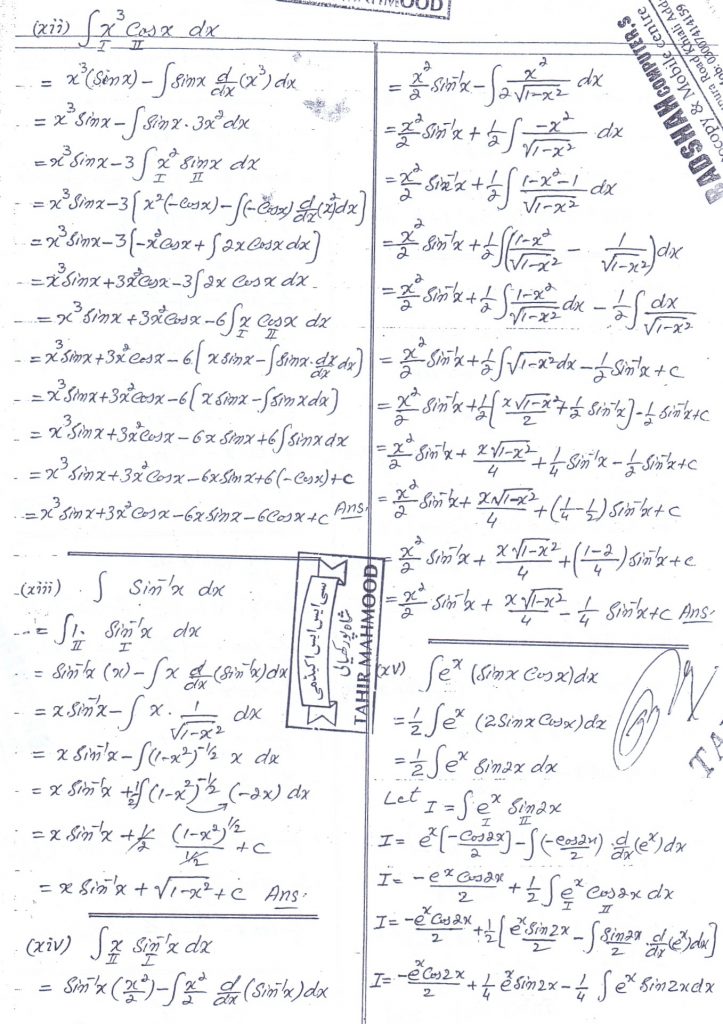 (xii) ∫ x³ Cosx dx
I II
= x³(Sinx) − ∫ Sinx d/dx (x³) dx
= x³ Sinx − ∫ Sinx · 3x² dx
= x³ Sinx − 3 ∫ x² Sinx dx
I II
= x³ Sinx − 3 [ x²(−Cosx) − ∫(−Cosx) d/dx (x²) dx ]
= x³ Sinx − 3 [ −x² Cosx + ∫ 2x Cosx dx ]
= x³ Sinx + 3x² Cosx − 3 ∫ 2x Cosx dx
= x³ Sinx + 3x² Cosx − 6 ∫ x Cosx dx
I II
= x³ Sinx + 3x² Cosx − 6 [ x Sinx − ∫ Sinx · dx/dx dx ]
= x³ Sinx + 3x² Cosx − 6 [ x Sinx − ∫ Sinx dx ]
= x³ Sinx + 3x² Cosx − 6x Sinx + 6 ∫ Sinx dx
= x³ Sinx + 3x² Cosx − 6x Sinx + 6 (−Cosx) + C
= x³ Sinx + 3x² Cosx − 6x Sinx − 6 Cosx + C Ans.
(xiii) ∫ Sin⁻¹x dx
= ∫ 1 · Sin⁻¹x dx
II I
= Sin⁻¹x (x) − ∫ x d/dx (Sin⁻¹x) dx
= x Sin⁻¹x − ∫ x · 1/√(1−x²) dx
= x Sin⁻¹x − ∫ (1−x²)^(−1/2) x dx
= x Sin⁻¹x + 1/2 ∫ (1−x²)^(−1/2) (−2x) dx
= x Sin⁻¹x + 1/2 (1−x²)^(1/2) / (1/2) + C
= x Sin⁻¹x + √(1−x²) + C Ans.
(xiv) ∫ x Sin⁻¹x dx
II I
= Sin⁻¹x (x²/2) − ∫ x²/2 d/dx (Sin⁻¹x) dx
= x²/2 Sin⁻¹x − ∫ x²/(2√(1−x²)) dx
= x²/2 Sin⁻¹x + 1/2 ∫ −x²/√(1−x²) dx
= x²/2 Sin⁻¹x + 1/2 ∫ (1−x²−1)/√(1−x²) dx
= x²/2 Sin⁻¹x + 1/2 ∫ ( (1−x²)/√(1−x²) − 1/√(1−x²) ) dx
= x²/2 Sin⁻¹x + 1/2 ∫ (1−x²)/√(1−x²) dx − 1/2 ∫ dx/√(1−x²)
= x²/2 Sin⁻¹x + 1/2 ∫ √(1−x²) dx − 1/2 Sin⁻¹x + C
= x²/2 Sin⁻¹x + 1/2 [ x√(1−x²)/2 + 1/2 Sin⁻¹x ] − 1/2 Sin⁻¹x + C
= x²/2 Sin⁻¹x + x√(1−x²)/4 + 1/4 Sin⁻¹x − 1/2 Sin⁻¹x + C
= x²/2 Sin⁻¹x + x√(1−x²)/4 + (1/4 − 1/2) Sin⁻¹x + C
= x²/2 Sin⁻¹x + x√(1−x²)/4 + ((1−2)/4) Sin⁻¹x + C
= x²/2 Sin⁻¹x + x√(1−x²)/4 − 1/4 Sin⁻¹x + C Ans.
(xv) ∫ eˣ (Sinx Cosx) dx
= 1/2 ∫ eˣ (2 Sinx Cosx) dx
= 1/2 ∫ eˣ Sin2x dx
Let I = ∫ eˣ Sin2x
I II
I = eˣ [ −Cos2x/2 ] − ∫ (−Cos2x/2) · d/dx (eˣ) dx
I = −eˣ Cos2x/2 + 1/2 ∫ eˣ Cos2x dx
I II
I = −eˣ Cos2x/2 + 1/2 [ eˣ Sin2x/2 − ∫ Sin2x/2 · d/dx (eˣ) dx ]
I = −eˣ Cos2x/2 + 1/4 eˣ Sin2x − 1/4 ∫ eˣ Sin2x dx
سی ایس ایس اکیڈمی
TAHIR MAHMOOD
BADSHAH COMPUTER,S
ocopy & Mobile centre
ura Road Khali Add
o: 03007414159
TA